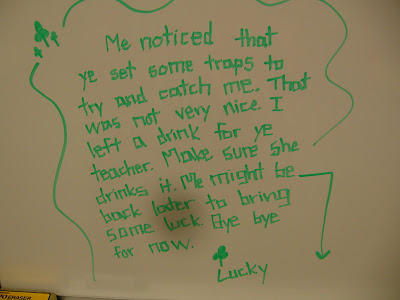 Me noticed that
ye set some traps to
try and catch me. That
was not very nice. I
left a drink for ye
teacher. Make sure she
drinks it. Me might be
back later to bring
some luck. Bye bye
for now.
Lucky
ERASER